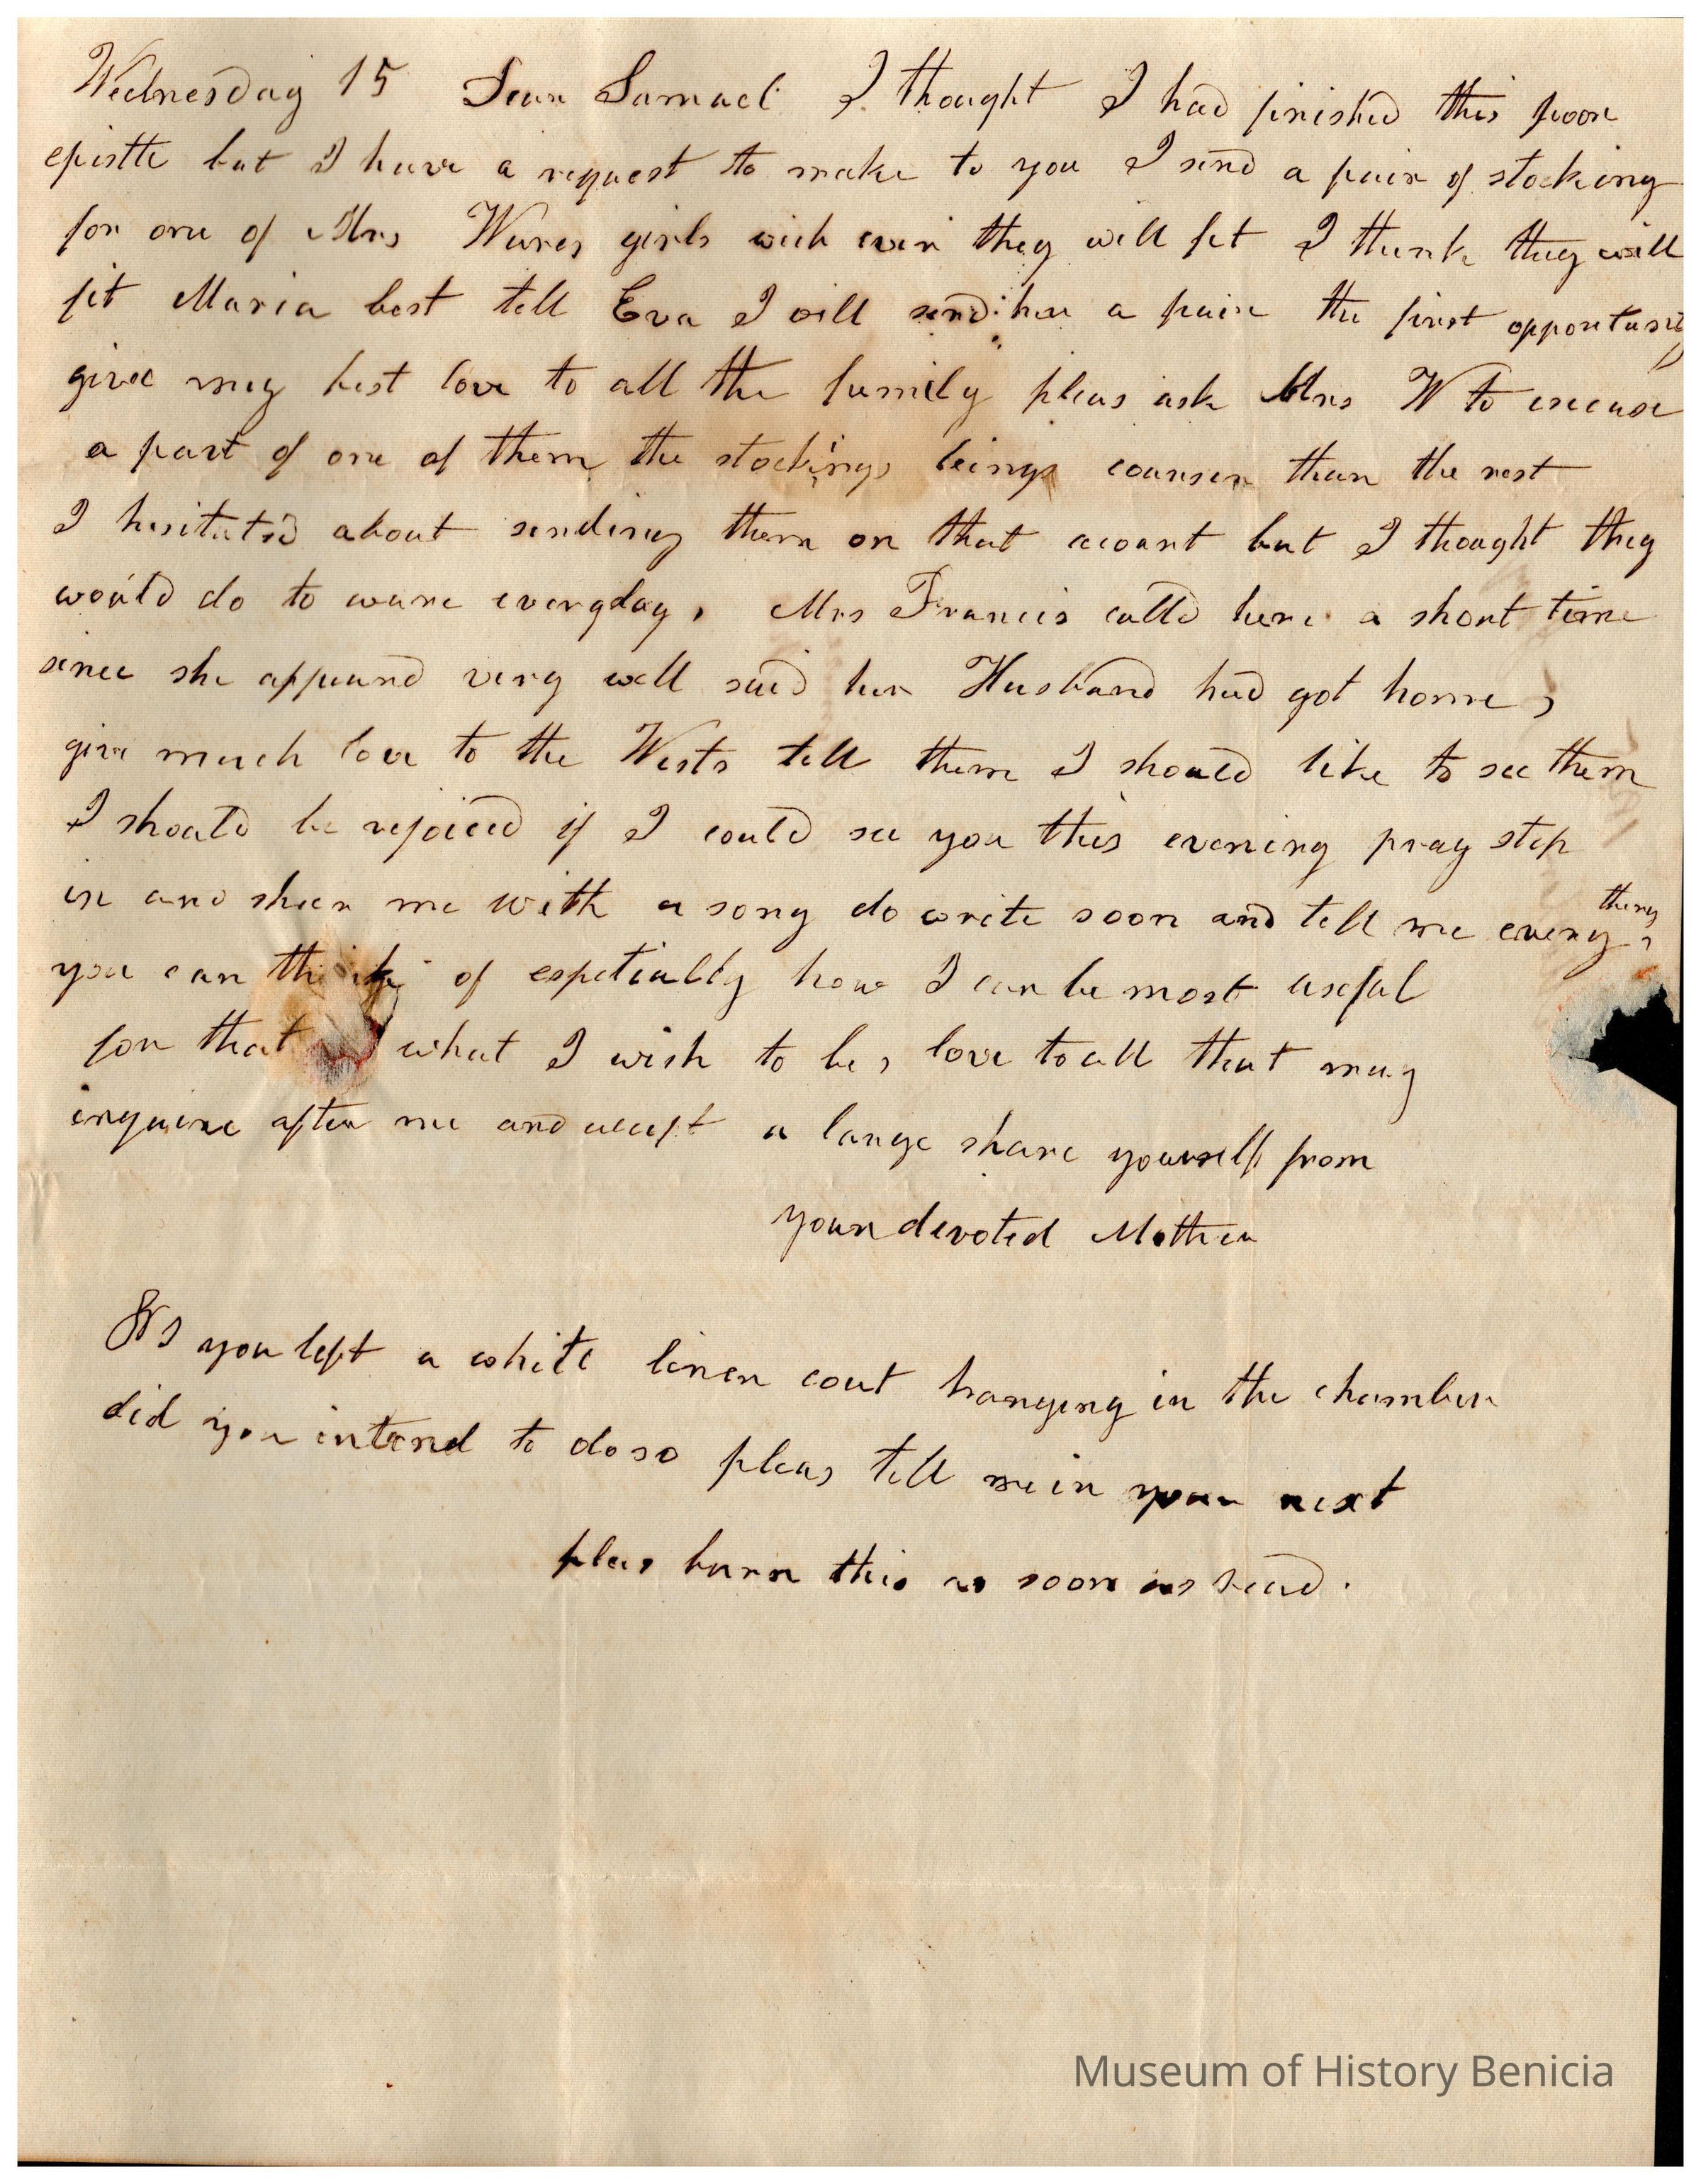 Wednesday 15 Dear Samuel I thought I had finished this poor
epistle but I have a request to make to you I send a pair of stocking
for one of Mrs Wares girls wich ever they will fit I think they will
fit Maria best tell Eva I will send her a pair the first opportunity
give my best love to all the family pleas ask Mrs W to excuse
a part of one of them the stockings being courser than the rest
I hesitated about sending them on that acount but I thought they
would do to ware everyday, Mrs Francis calld here a short time
since she appeard very well said her Husband had got home,
give much love to the Wests tell them I should like to see them
I should be rejoiced if I could see you this evening pray step
in and sheer me with a song do write soon and tell me every thing,
you can think of espetially how I can be most useful
for that what I wish to be, love to all that may
inquire after me and accept a large share yourself from
your devoted Mother
PS you left a white linen coat hanging in the chamber
did you intend to do so pleas tell me in your next
pleas burn this as soon as read.
Museum of History Benicia